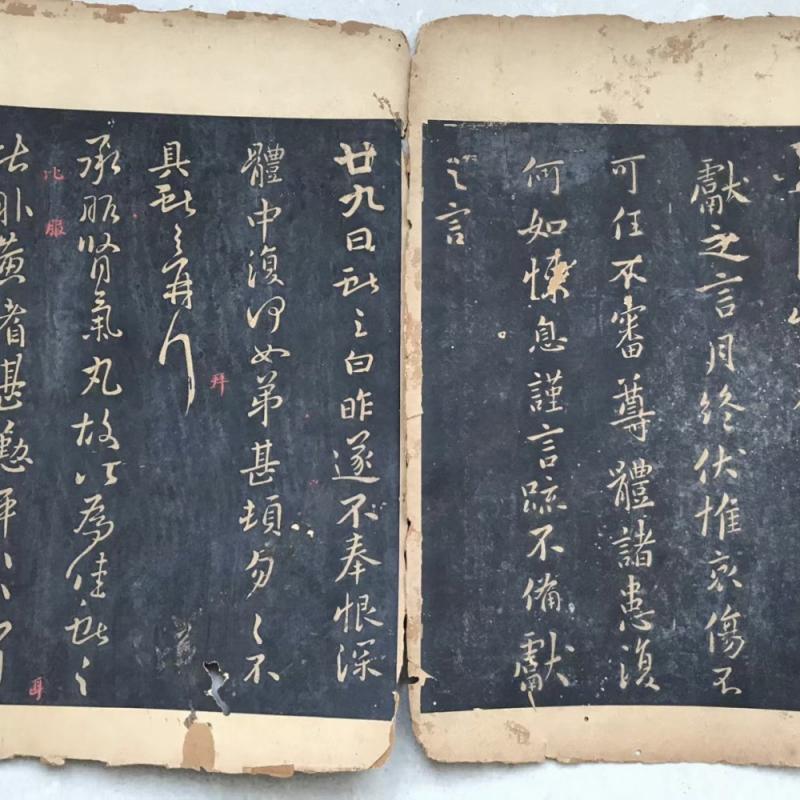 獻之言月終伏惟哀傷不
可任不審尊體諸患復
何如悚息謹言疏不備獻
之言
廿九日獻之白昨遂不奉恨深
體中復何如弟甚頓匆匆不
具獻之再拜
拜
承服腎氣丸故以為佳獻之
服
比
比服黃耆甚勤平平耳
耳